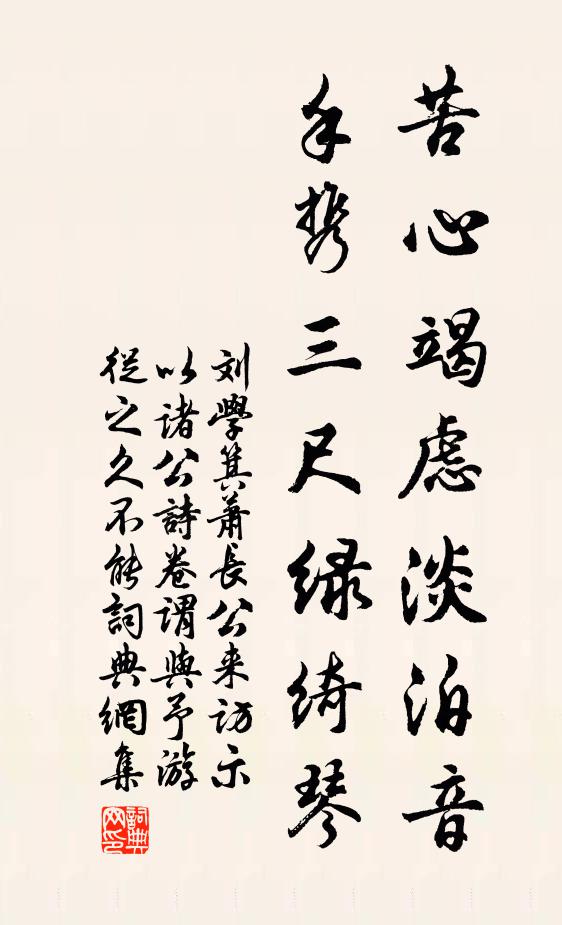 苦心竭虑淡泊音
手携三尺绿绮琴
刘學箕蕭長公来访示
以诸公詩卷谓與予游
從之久不能詞典網集
詞典網印